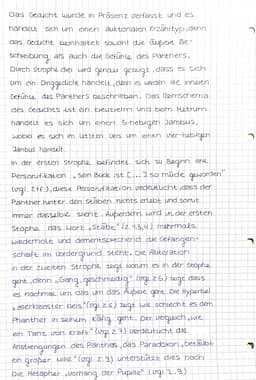 Das Gedicht wurde in Präsenz verfasst und es
handelt sich um einen auktorialen Erzähltyp, denn
das Gedicht beinhaltet sowohl die äußere Be-
schreibung, als auch die Gefühle des Panthers.
Durch Strophe drei wird genau gezeigt, dass es sich
um ein Dinggedicht handelt, denn es werden die inneren
Gefühle des Panthers beschrieben. Das Reimschema
des Gedichts ist ein Kreuzreim und beim Metrum
handelt es sich um einen 5-hebigen Jambus,
wobei es sich im letzten Vers um einen vier-hebigen
Jambus handelt.
In der ersten Strophe befindet sich zu Beginn eine
Personifikation „Sein Blick ist [...] so müde geworden"
(vgl. Z.1f.), diese Personifikation verdeutlicht, dass der
Panther hinter den Stäben nichts erlebt und somit
immer dasselbe sieht. Außerdem wird in der ersten
Strophe das Wort „Stäbe" (Z. 1,3,4) mehrmals
wiederholt und dementsprechend die Gefangen-
schaft im Vordergrund steht. Die Alliteration
in der zweiten Strophe zeigt worum es in der Strophe
geht, denn „Gang, geschmeidig" (vgl. Z.5) zeigt dass
es nochmal um das um das Äußere geht. Die Hyperbel
„allerkleinsten Kreis" (vgl. Z.6) zeigt wie schlecht es dem
Phanther in seinem Käfig geht. Der Vergleich „wie
ein Tanz von Kraft" (vgl. Z.7) verdeutlicht die
Anstrengungen des Panthers, das Paradoxon „betäubt
ein großer Wille" (vgl. Z.8) unterstützt dies noch
Die Metapher „Vorhang der Pupille" (vgl. Z.9)